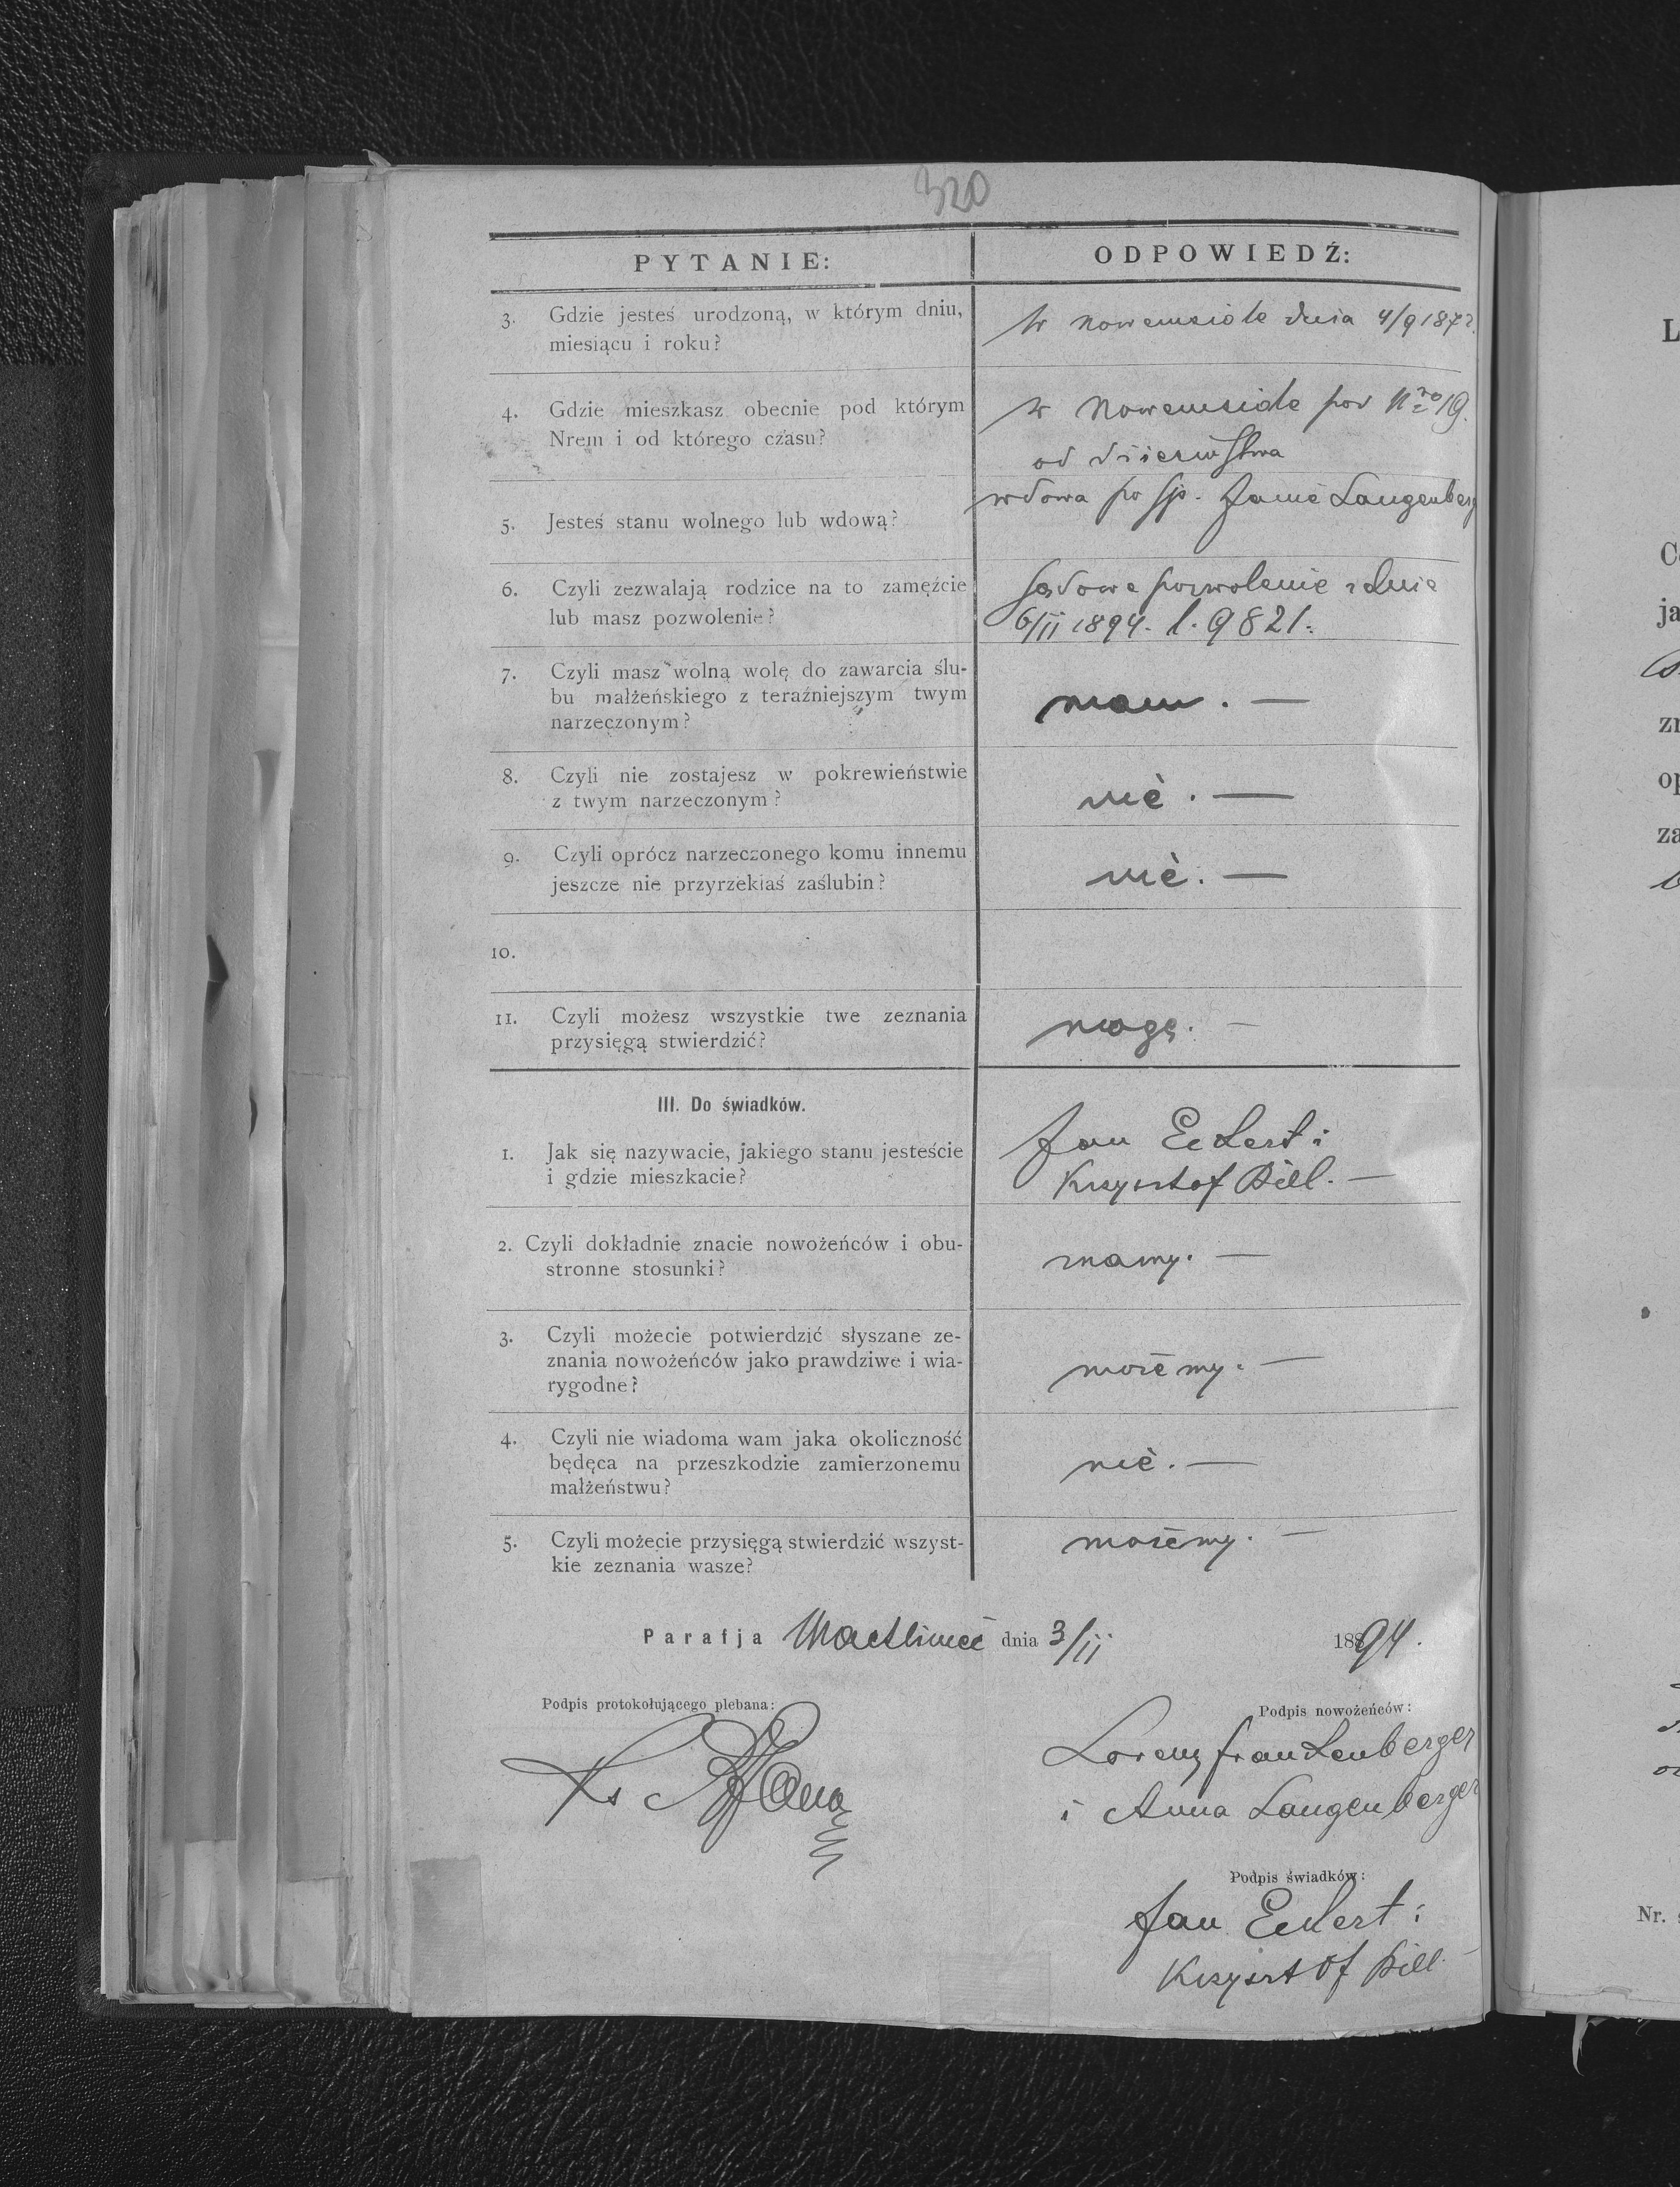 320
PYTANIE:
ODPOWIEDŹ:
3. Gdzie jesteś urodzoną, w którym dniu,
miesiącu i roku?
w Nowemsiole dnia 4/9 1872.
4. Gdzie mieszkasz obecnie pod którym
Nrem i od którego czasu?
w Nowemsiole pod Nro 19.
od dzieciństwa
5. Jesteś stanu wolnego lub wdową?
wdowa po śp. Janie Langenberg
6. Czyli zezwalają rodzice na to zamęźcie
lub masz pozwolenie?
sądowe pozwolenie z dnia
6/II 1894. l. 9821.
7. Czyli masz wolną wolę do zawarcia ślu-
bu małżeńskiego z teraźniejszym twym
narzeczonym?
mam. —
8. Czyli nie zostajesz w pokrewieństwie
z twym narzeczonym?
nie. —
9. Czyli oprócz narzeczonego komu innemu
jeszcze nie przyrzekłaś zaślubin?
nie. —
10.
11. Czyli możesz wszystkie twe zeznania
przysięgą stwierdzić?
mogę. —
III. Do świadków.
1. Jak się nazywacie, jakiego stanu jesteście
i gdzie mieszkacie?
Jan Eckert i
Krzysztof Bill. —
2. Czyli dokładnie znacie nowożeńców i obu-
stronne stosunki?
znamy. —
3. Czyli możecie potwierdzić słyszane ze-
znania nowożeńców jako prawdziwe i wia-
rygodne?
możemy. —
4. Czyli nie wiadoma wam jaka okoliczność
będęca na przeszkodzie zamierzonemu
małżeństwu?
nie. —
5. Czyli możecie przysięgą stwierdzić wszyst-
kie zeznania wasze?
możemy. —
Parafja Machliniec dnia 3/II 1894.
Podpis protokołującego plebana:
Podpis nowożeńców:
Ks
Lorenz Frankenberger
i Anna Langenberger
Podpis świadków:
Jan Eckert i
Krzysztof Bill
Nr.